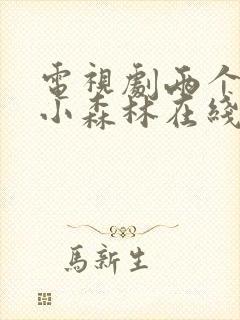 電視劇兩个
小森林在綫
馬新生